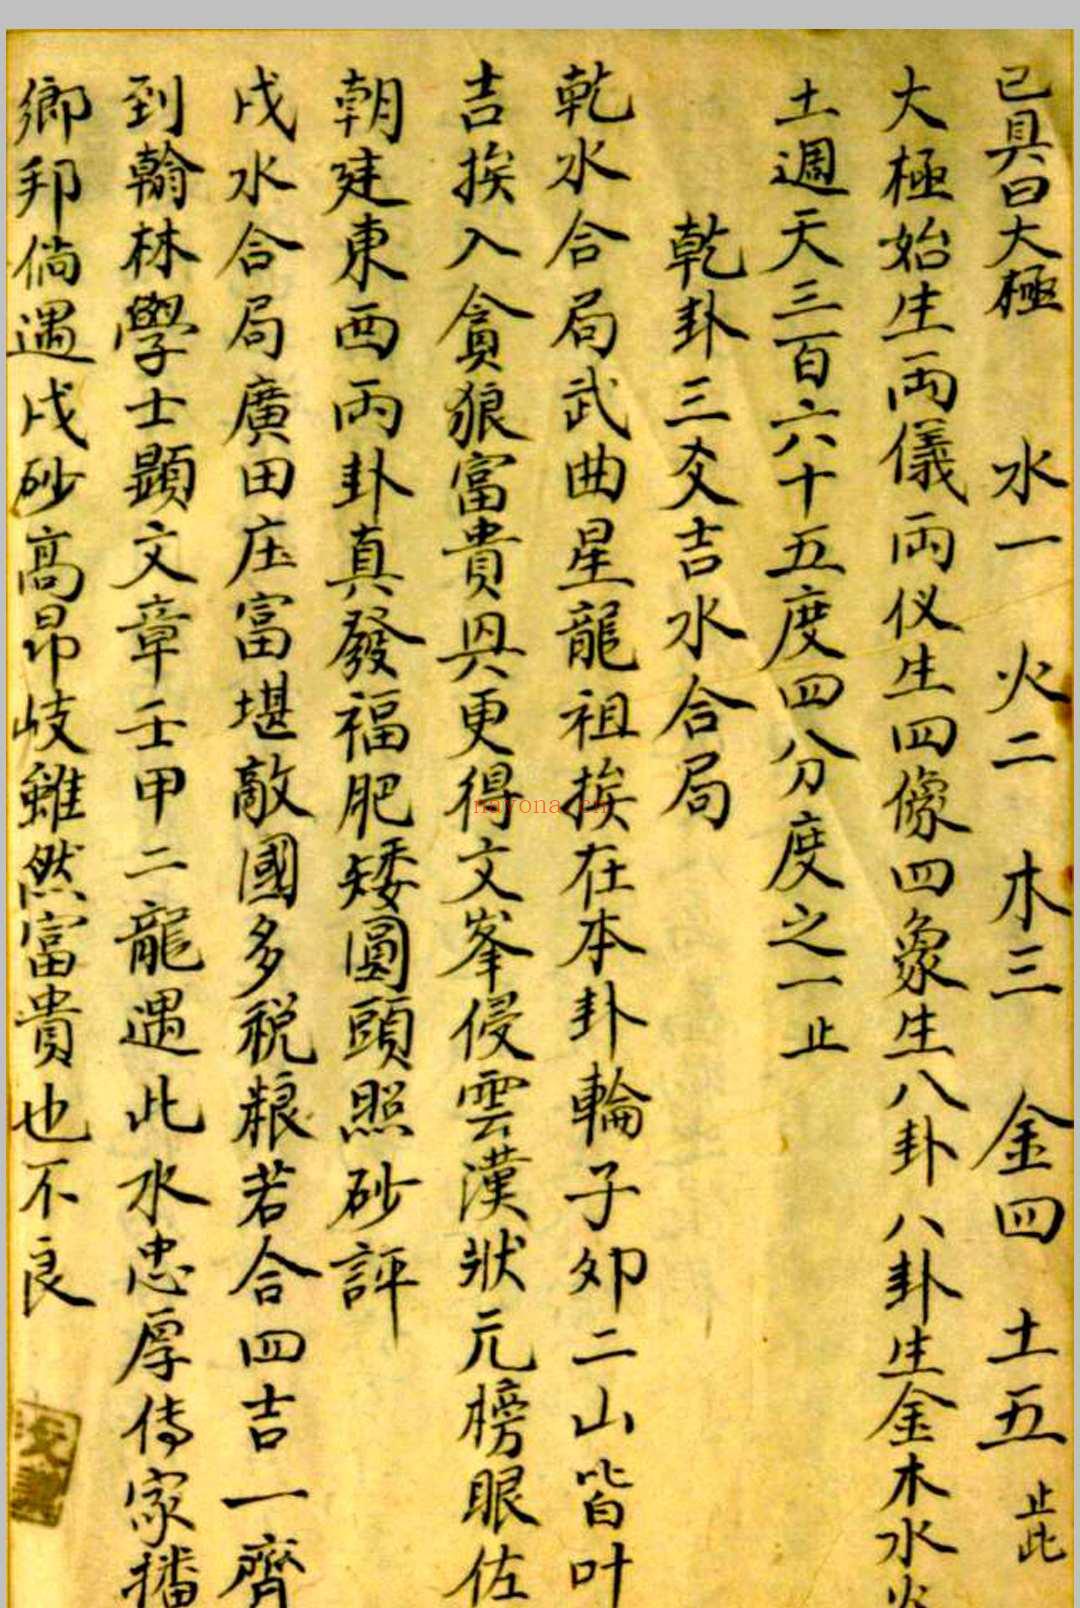 已具曰大極 水一 火二 木三 金四 土五 止此
大極始生両儀両仪生四像四象生八卦八卦生金木水火
土週天三百六十五度四分度之一止
乾卦三爻吉水合局
乾水合局武曲星龍祖挨在本卦輪子卯二山皆叶
吉挨入貪狼富貴具更得文峯侵雲漢狀元榜眼佐
朝廷東西両卦真發福肥矮圓頭照砂評
戌水合局廣田庄富堪敵國多税粮若合四吉一齊
到翰林學士顕文章壬甲二龍遇此水忠厚傳家播
鄉邦倘遇戌砂高昂岐雖然富貴也不良
nayona.cn